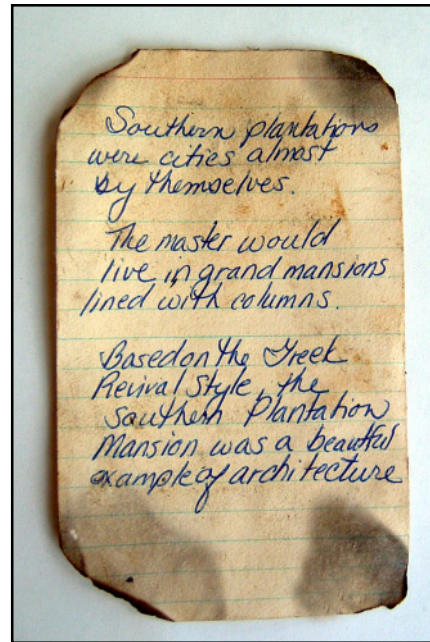 Southern plantations
were cities almost
by themselves.
The master would
live in grand mansions
lined with columns.
Based on the Greek
Revival Style, the
Southern Plantation
Mansion was a beautful
example of architecture